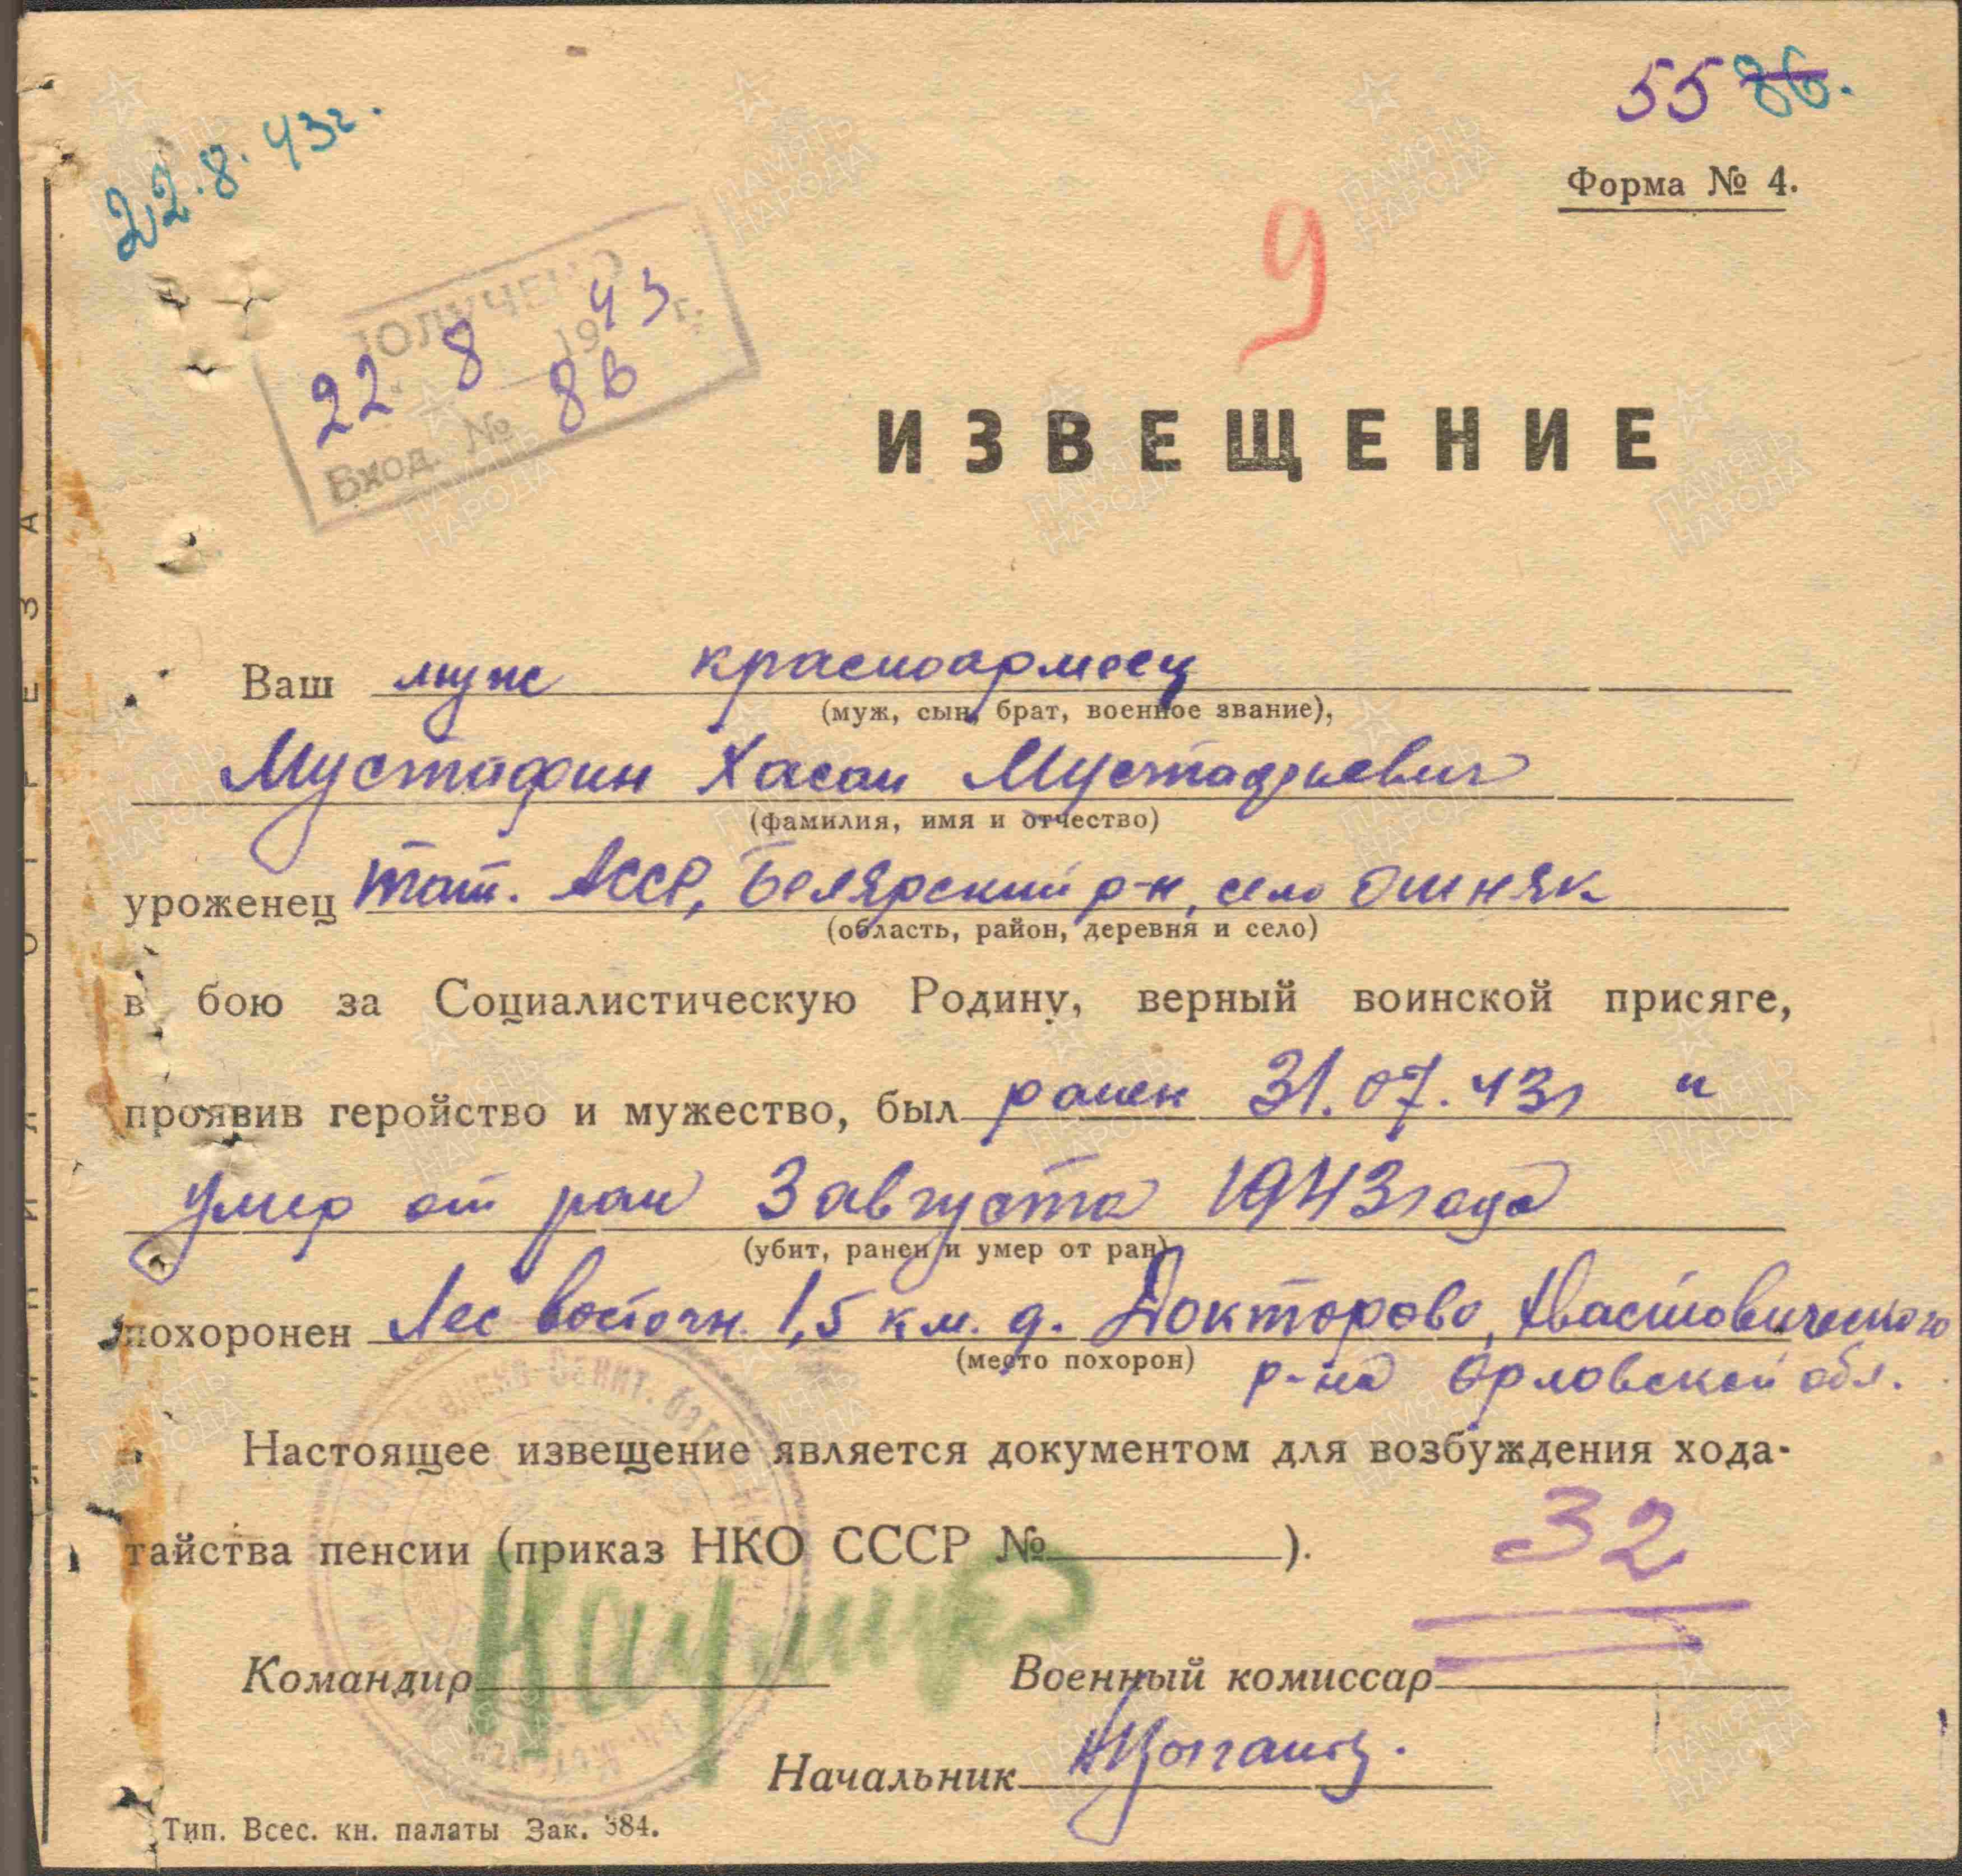 55 86.
22.8.43г.
Форма № 4.
9
ПОЛУЧЕНО
22 8 1943 г.
Вход. № 86
ИЗВЕЩЕНИЕ
Ваш муж красноармеец
(муж, сын, брат, военное звание),
Мустафин Хасан
(фамилия, имя и отчество)
уроженец Тат. АССР, Белярский р-н, село Ошняк
(область, район, деревня и село)
в бою за Социалистическую Родину, верный воинской присяге,
проявив геройство и мужество, был ранен 31.07.43г и
умер от ран 3 августа 1943 года
(убит, ранен и умер от ран)
похоронен Лес восточн. 1,5 км. д. Докторово, Хвастовического
(место похорон) р-на Орловской обл.
Настоящее извещение является документом для возбуждения хода-
тайства пенсии (приказ НКО СССР № ).
32
Командир Военный комиссар
Начальник
Тип. Всес. кн. палаты Зак. 384.
ПАМЯТЬ НАРОДА